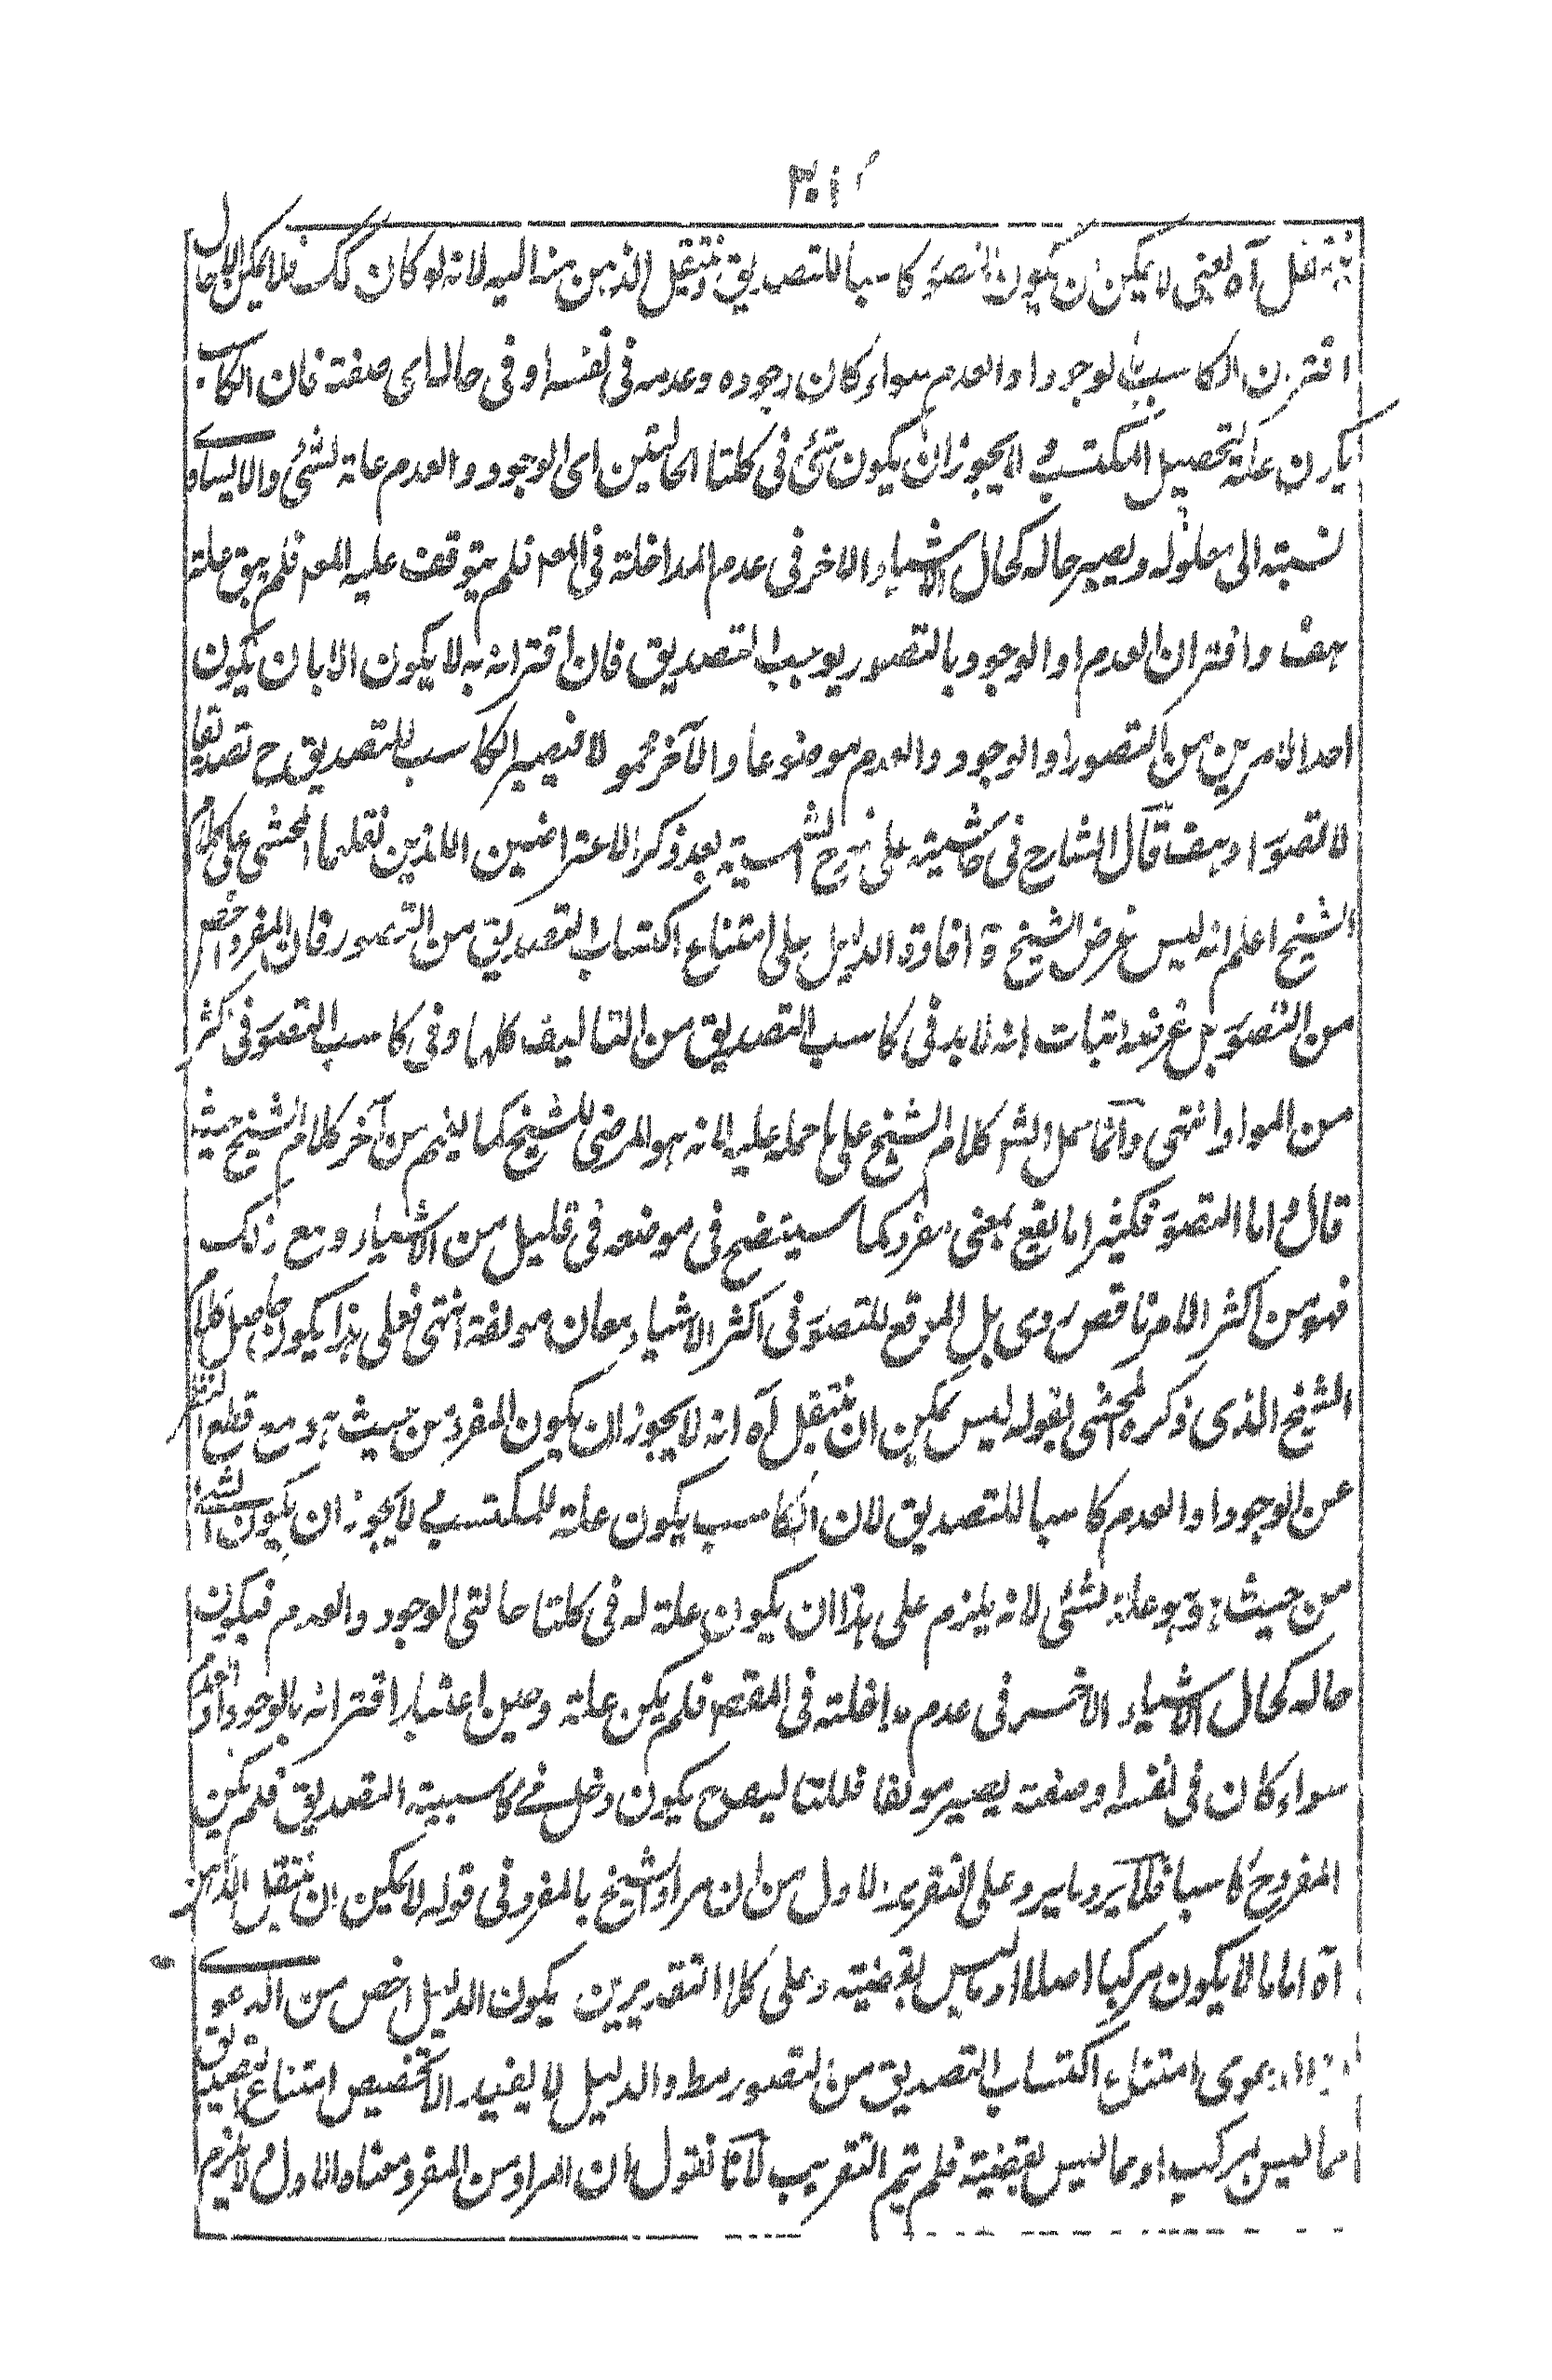 ٣٠١
ينتقل آه يعنى لا يمكن ان يكون التصور كاسبا للتصديق وينتقل الذهن منه اليه لانه لو كان كك فلا يمكن اما حال
اقترن الكاسب بالوجود او العدم سواء كان وجوده وعدمه فى نفسه او فى حاله اى صفته فان الكاسب
يكون علة لتحصيل المكتسب ولا يجوز ان يكون شئ فى كلتا الحالتين اى الوجود والعدم علة لشئ والا ليساوى
نسبته الى معلوله ويصير حاله كحال الاشياء الاخر فى عدم المداخلة فى المعـ فلم يتوقف عليه المعـ فلم يبق علة
هف واقتران العدم او الوجود بالتصور يوجب التصديق فان اقترانه به لا يكون الا بان يكون
احد الامرين من التصور او الوجود والعدم موضوعا والآخر محمولا فيصير الكاسب للتصديق ح تصديقا
لا تصورا وهف قال الشارح فى حاشيته على شرح الشمسية بعد ذكر الاعتراضين اللذين نقلهما المحشى على كلام
الشيخ اعلم انه ليس غرض الشيخ ة افادة الدليل على امتناع اكتساب التصديق من التصور فان المفرد اخص
من التصور بل غرضه اثبات انه لا بد فى كاسب التصديق من التاليف كلها وفى كاسب التصور فى كثر
من المواد انتهى وانما حمل الشـ كلام الشيخ على ما حمله عليه لانه هو المرضى للشيخ كما يفهم من آخر كلام الشيخ حيث
قال واما التصور فكثيرا ما يقع بمعنى مفرد كما سيتضح فى موضعه فى قليل من الاشياء ومع ذلك
فهو من اكثر الامر ناقص ردى بل الموقع للتصور فى اكثر الاشياء معان مولفة انتهى فعلى هذا يكون حاصل كلام
الشيخ الذى ذكره المحشى بقوله ليس يمكن ان ينتقل آه انه لا يجوز ان يكون المفرد من حيث هو مع قطع النظر
عن الوجود او العدم كاسبا للتصديق لان الكاسب يكون علة للمكتسب ولا يجوز ان يكون الشئ
من حيث هو هو علة لشئ لانه يلزم على هذا ان يكون علة له فى كلتا حالتى الوجود والعدم فيكون
حاله كحال الاشياء الاخر فى عدم مداخلته فى المقصـ فلم يكن علة وحين اعتبار اقترانه بالوجود او العدم
سواء كان فى نفسه او صفته يصير مولفا فللتاليف ح يكون دخل فى كاسبية التصديق فلم يكن
المفرد ح كاسبا فلا يرد ما يرد على التقرير الاول من ان مراد الشيخ بالمفرد فى قوله لا يمكن ان ينتقل الذهن
آه اما ما لا يكون مركبا اصلا او ما ليس بقضية وعلى كلا التقديرين يكون الدليل اخص من الدعوى
دعوى امتناع اكتساب التصديق من التصور مط والدليل لا يفيد الا تخصيص امتناع التصديق
مما ليس بمركب او مما ليس بقضية فلم يتم التقريب لانا نقول ان المراد من المفرد معناه الاول ولا يلزم